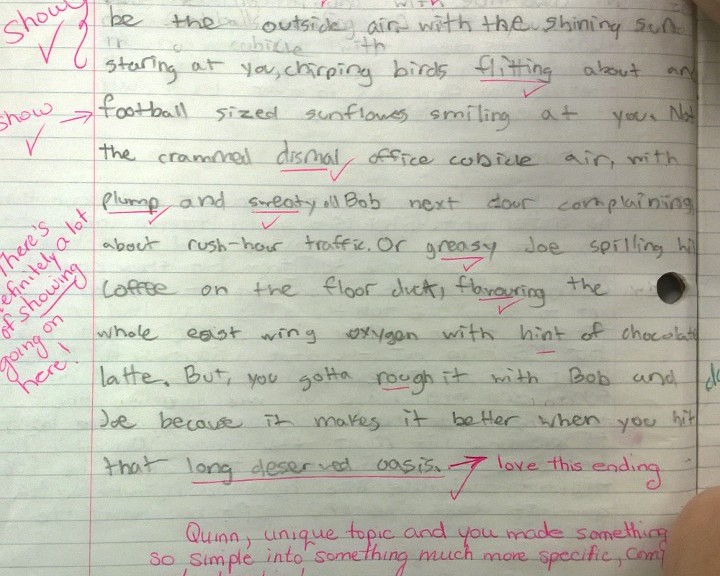 Show
be the outside air with the shining sun
staring at you, chirping birds flitting about an
show → football sized sunflowes smiling at you. Not
the crammed dismal office cubicle air, with
plump and sweaty Bob next dour complaining
There's
efinitely a lot
of showing
going on
here!
about rush-hour traffic. Or greasy Joe spilling hi
coffee on the floor duct, flavouring the
whole east wing oxygen with hint of chocolat
latte. But, you gotta rough it with Bob and
Joe because it makes it better when you hit
that long deserved oasis. → love this ending
Quinn, unique topic and you made something
so simple into something much more specific, comp